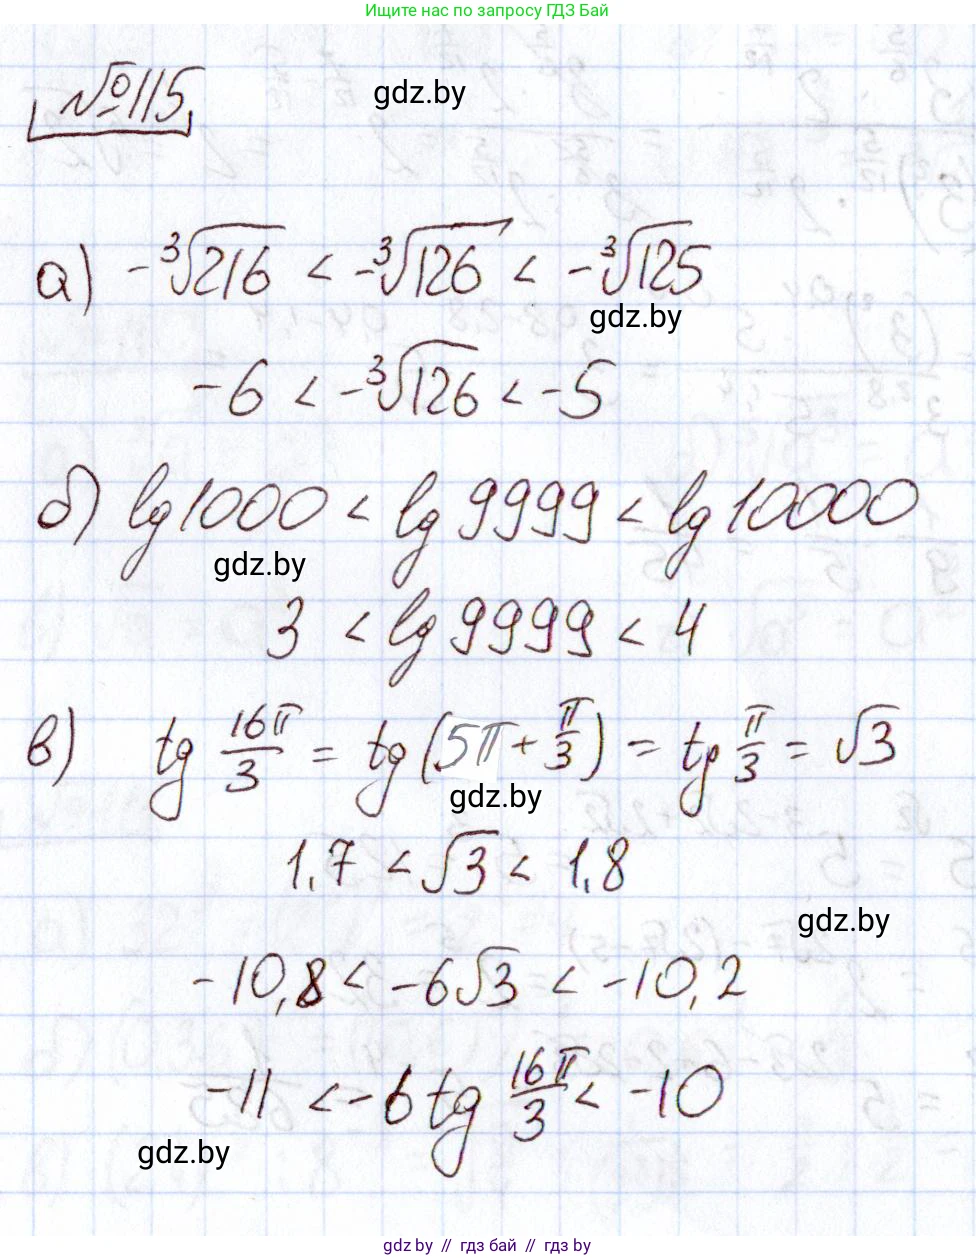 Ищите нас по запросу ГДЗ Бай
№115
gdz.by
а) -∛216 < -∛126 < -∛125
gdz.by
-6 < -∛126 < -5
б) lg 1000 < lg 9999 < lg 10000
gdz.by
3 < lg 9999 < 4
в) tg 16π/3 = tg (5π + π/3) = tg π/3 = √3
gdz.by
1,7 < √3 < 1,8
gdz.by
-10,8 < -6√3 < -10,2
-11 < -6 tg 16π/3 < -10
gdz.by
gdz by // гдз бай // гдз by